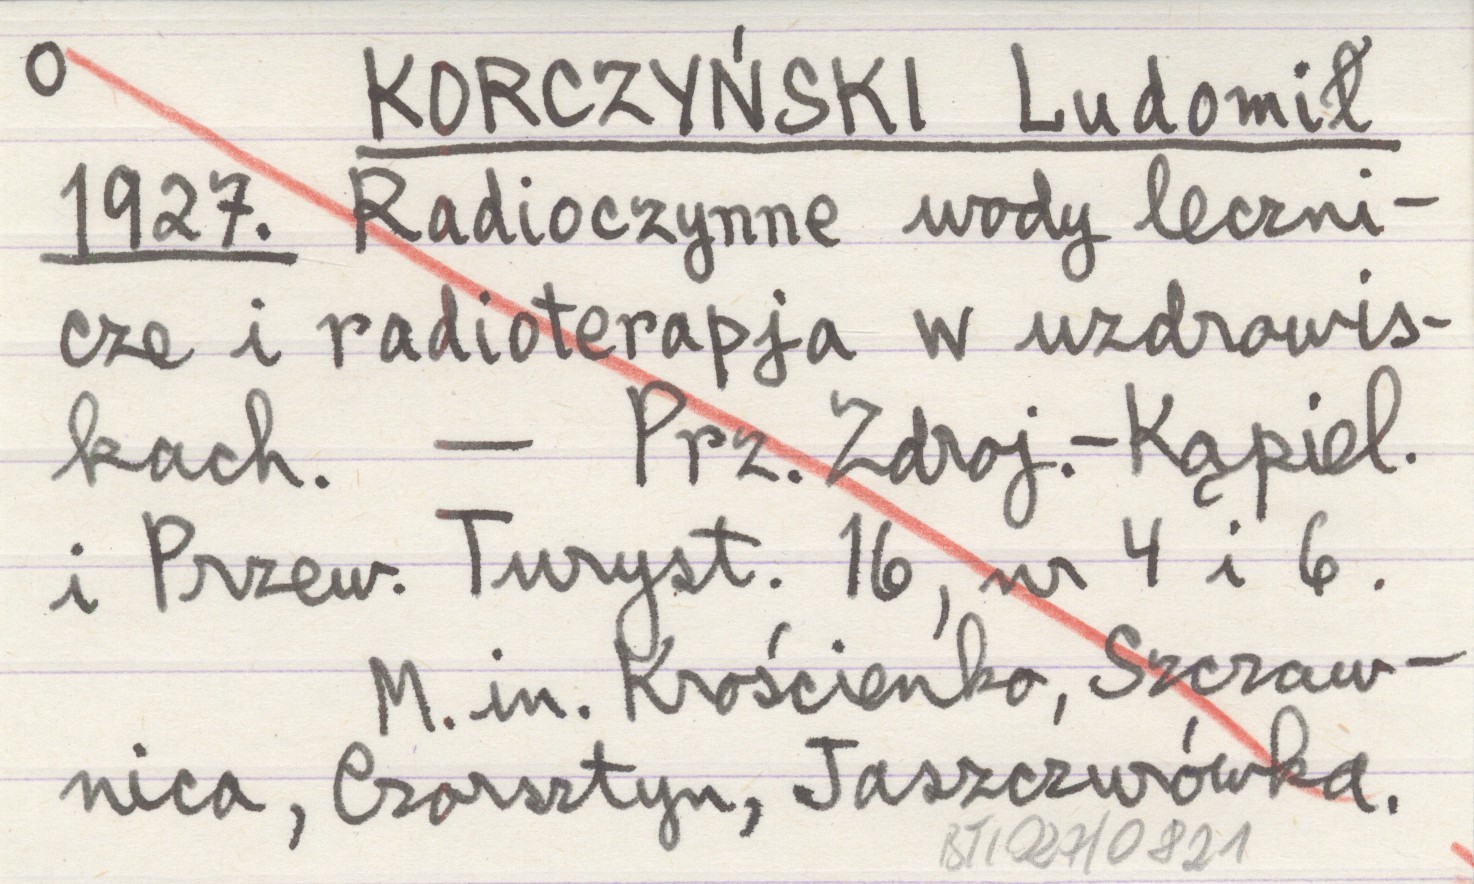 O KORCZYŃSKI Ludomił
1927. Radioczynne wody leczni-
cze i radioterapja w uzdrowis-
kach. — Prz. Zdroj.-Kąpiel.
i Przew. Turyst. 16, nr 4 i 6.
M. in. Krościenko, Szczaw-
nica, Czorsztyn, Jaszczurówka.